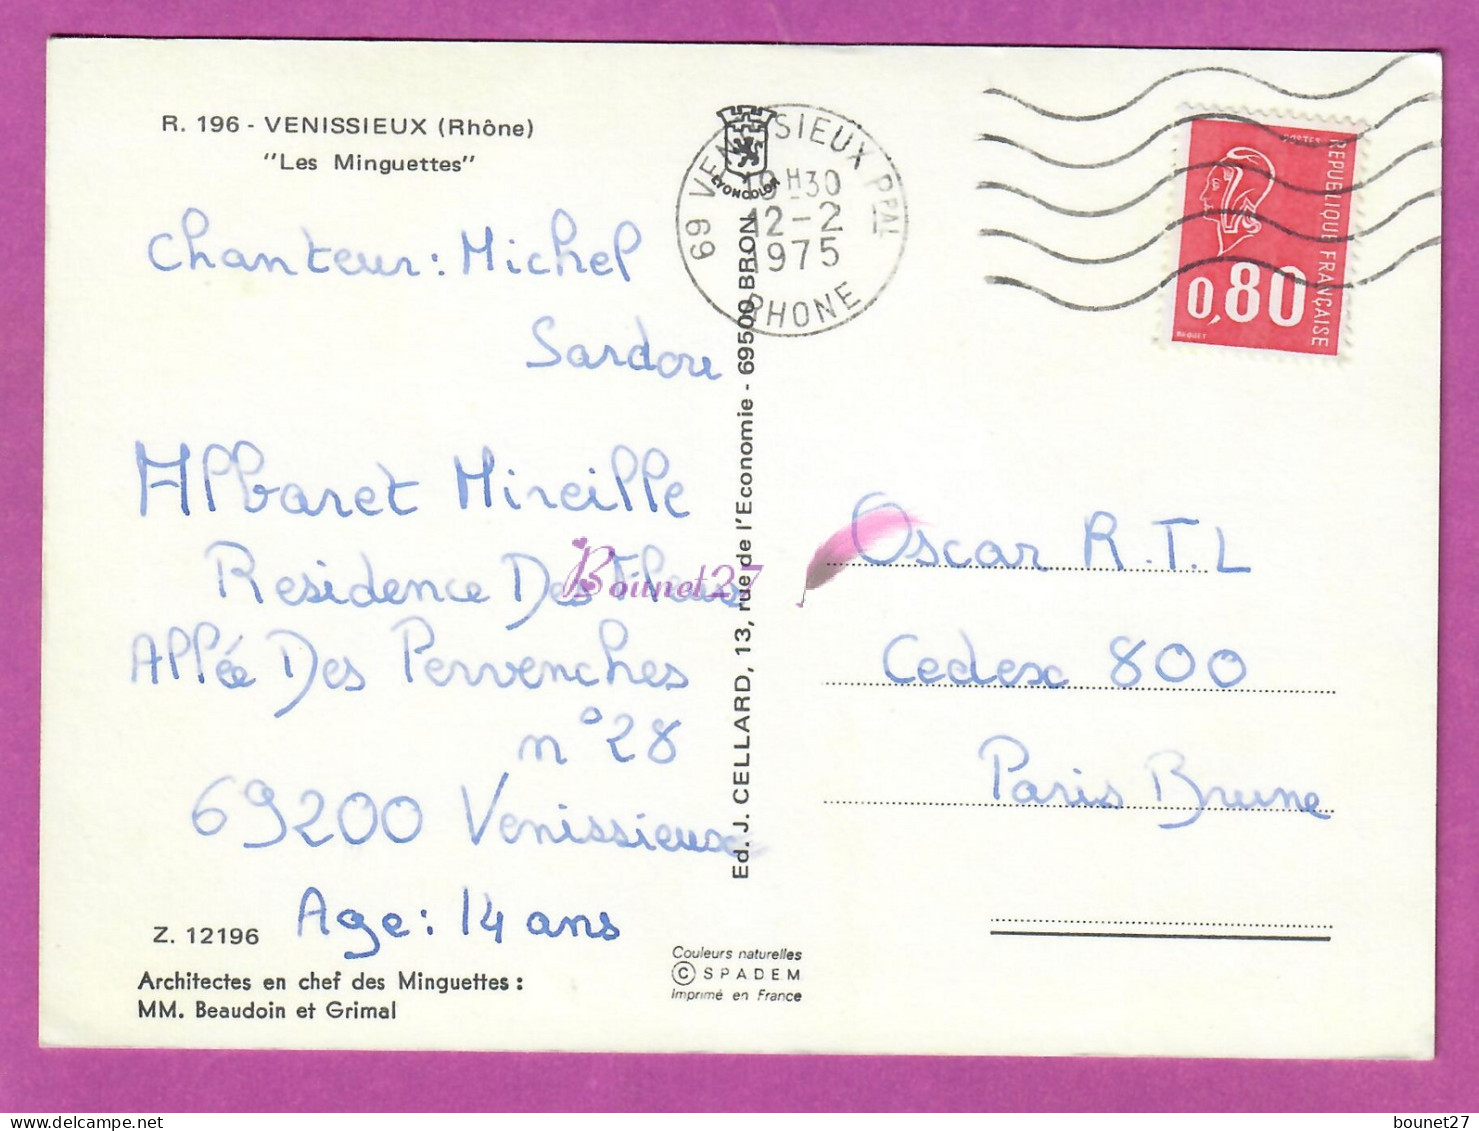 R. 196 - VENISSIEUX (Rhône)
"Les Minguettes"
Chanteur : Michel
Sardou
Albaret Mireille
Residence Des Fleurs
Allée Des Pervenches
n° 28
69200 Venissieux
Age : 14 ans
Z. 12196
Architectes en chef des Minguettes :
MM. Beaudoin et Grimal
LYONCOLOR
Ed. J. CELLARD, 13, rue de l'Economie - 69500 BRON
Couleurs naturelles
© SPADEM
Imprimé en France
69 VENISSIEUX PPAL
19H30
12-2
1975
RHONE
POSTES
REPUBLIQUE FRANÇAISE
0,80
BEQUET
Oscar R.T.L
Cedex 800
Paris Brune
Bounet27
bounet27